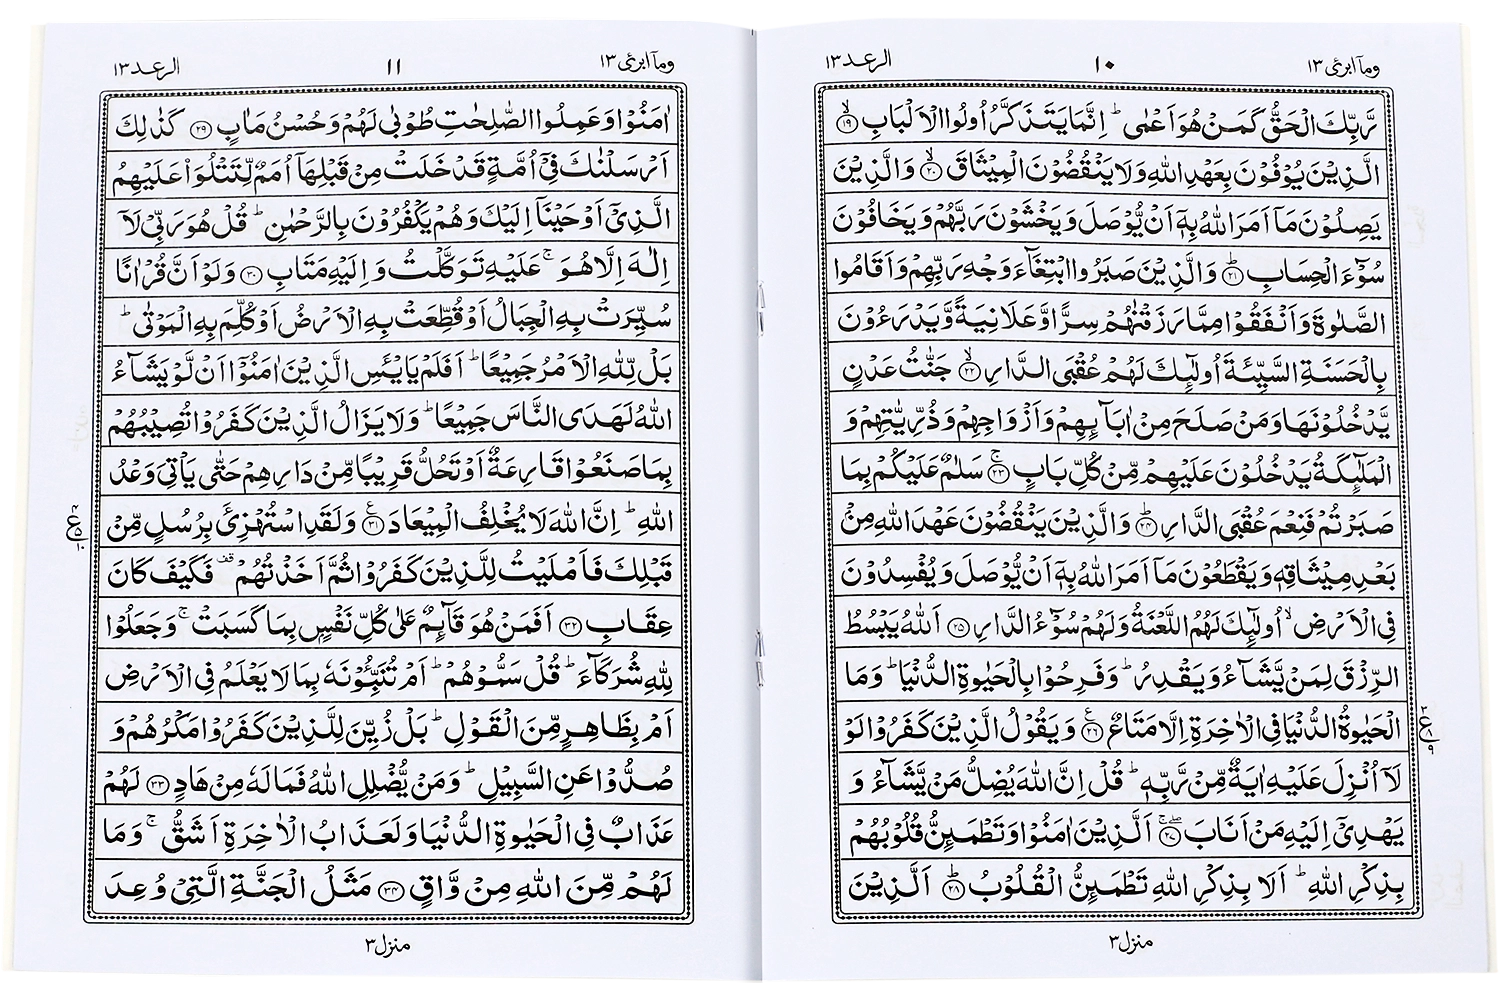 ومآ ابرئ ١٣
١٠
الرعد ١٣
رَّبِّكَ الْحَقُّ كَمَنْ هُوَ اَعْمٰى ؕ اِنَّمَا يَتَذَكَّرُ اُولُوا الْاَلْبَابِ ۙ﴿۱۹﴾
الَّذِيْنَ يُوْفُوْنَ بِعَهْدِ اللّٰهِ وَلَا يَنْقُضُوْنَ الْمِيْثَاقَ ۙ﴿۲۰﴾ وَالَّذِيْنَ
يَصِلُوْنَ مَاۤ اَمَرَ اللّٰهُ بِهٖۤ اَنْ يُّوْصَلَ وَيَخْشَوْنَ رَبَّهُمْ وَيَخَافُوْنَ
سُوْٓءَ الْحِسَابِ ؕ﴿۲۱﴾ وَالَّذِيْنَ صَبَرُوا ابْتِغَآءَ وَجْهِ رَبِّهِمْ وَاَقَامُوا
الصَّلٰوةَ وَاَنْفَقُوْا مِمَّا رَزَقْنٰهُمْ سِرًّا وَّعَلَانِيَةً وَّيَدْرَءُوْنَ
بِالْحَسَنَةِ السَّيِّئَةَ اُولٰٓئِكَ لَهُمْ عُقْبَى الدَّارِ ۙ﴿۲۲﴾ جَنّٰتُ عَدْنٍ
يَّدْخُلُوْنَهَا وَمَنْ صَلَحَ مِنْ اٰبَآئِهِمْ وَاَزْوَاجِهِمْ وَذُرِّيّٰتِهِمْ وَ
الْمَلٰٓئِكَةُ يَدْخُلُوْنَ عَلَيْهِمْ مِّنْ كُلِّ بَابٍ ۚ﴿۲۳﴾ سَلٰمٌ عَلَيْكُمْ بِمَا
صَبَرْتُمْ فَنِعْمَ عُقْبَى الدَّارِ ؕ﴿۲۴﴾ وَالَّذِيْنَ يَنْقُضُوْنَ عَهْدَ اللّٰهِ مِنْۢ
بَعْدِ مِيْثَاقِهٖ وَيَقْطَعُوْنَ مَاۤ اَمَرَ اللّٰهُ بِهٖۤ اَنْ يُّوْصَلَ وَيُفْسِدُوْنَ
فِى الْاَرْضِ ۙ اُولٰٓئِكَ لَهُمُ اللَّعْنَةُ وَلَهُمْ سُوْٓءُ الدَّارِ ﴿۲۵﴾ اَللّٰهُ يَبْسُطُ
الرِّزْقَ لِمَنْ يَّشَآءُ وَيَقْدِرُ ؕ وَفَرِحُوْا بِالْحَيٰوةِ الدُّنْيَا ؕ وَمَا
الْحَيٰوةُ الدُّنْيَا فِى الْاٰخِرَةِ اِلَّا مَتَاعٌ ﴿۲۶﴾ وَيَقُوْلُ الَّذِيْنَ كَفَرُوْا لَوْ
لَاۤ اُنْزِلَ عَلَيْهِ اٰيَةٌ مِّنْ رَّبِّهٖ ؕ قُلْ اِنَّ اللّٰهَ يُضِلُّ مَنْ يَّشَآءُ وَ
يَهْدِىْۤ اِلَيْهِ مَنْ اَنَابَ ۚ﴿۲۷﴾ اَلَّذِيْنَ اٰمَنُوْا وَتَطْمَئِنُّ قُلُوْبُهُمْ
بِذِكْرِ اللّٰهِ ؕ اَلَا بِذِكْرِ اللّٰهِ تَطْمَئِنُّ الْقُلُوْبُ ؕ﴿۲۸﴾ اَلَّذِيْنَ
منزل ٣
ومآ ابرئ ١٣
١١
الرعد ١٣
اٰمَنُوْا وَعَمِلُوا الصّٰلِحٰتِ طُوْبٰى لَهُمْ وَحُسْنُ مَاٰبٍ ﴿۲۹﴾ كَذٰلِكَ
اَرْسَلْنٰكَ فِىْۤ اُمَّةٍ قَدْ خَلَتْ مِنْ قَبْلِهَاۤ اُمَمٌ لِّتَتْلُوَا۟ عَلَيْهِمُ
الَّذِىْۤ اَوْحَيْنَاۤ اِلَيْكَ وَهُمْ يَكْفُرُوْنَ بِالرَّحْمٰنِ ؕ قُلْ هُوَ رَبِّىْ لَاۤ
اِلٰهَ اِلَّا هُوَ ۚ عَلَيْهِ تَوَكَّلْتُ وَاِلَيْهِ مَتَابِ ﴿۳۰﴾ وَلَوْ اَنَّ قُرْاٰنًا
سُيِّرَتْ بِهِ الْجِبَالُ اَوْ قُطِّعَتْ بِهِ الْاَرْضُ اَوْ كُلِّمَ بِهِ الْمَوْتٰى ؕ
بَلْ لِّلّٰهِ الْاَمْرُ جَمِيْعًا ؕ اَفَلَمْ يَايْـَٔسِ الَّذِيْنَ اٰمَنُوْۤا اَنْ لَّوْ يَشَآءُ
اللّٰهُ لَهَدَى النَّاسَ جَمِيْعًا ؕ وَلَا يَزَالُ الَّذِيْنَ كَفَرُوْا تُصِيْبُهُمْ
بِمَا صَنَعُوْا قَارِعَةٌ اَوْ تَحُلُّ قَرِيْبًا مِّنْ دَارِهِمْ حَتّٰى يَاْتِىَ وَعْدُ
اللّٰهِ ؕ اِنَّ اللّٰهَ لَا يُخْلِفُ الْمِيْعَادَ ﴿۳۱﴾ وَلَقَدِ اسْتُهْزِئَ بِرُسُلٍ مِّنْ
قَبْلِكَ فَاَمْلَيْتُ لِلَّذِيْنَ كَفَرُوْا ثُمَّ اَخَذْتُهُمْ قف فَكَيْفَ كَانَ
عِقَابِ ﴿۳۲﴾ اَفَمَنْ هُوَ قَآئِمٌ عَلٰى كُلِّ نَفْسٍۢ بِمَا كَسَبَتْ ۚ وَجَعَلُوْا
لِلّٰهِ شُرَكَآءَ ؕ قُلْ سَمُّوْهُمْ ؕ اَمْ تُنَبِّـُٔوْنَهٗ بِمَا لَا يَعْلَمُ فِى الْاَرْضِ
اَمْ بِظَاهِرٍ مِّنَ الْقَوْلِ ؕ بَلْ زُيِّنَ لِلَّذِيْنَ كَفَرُوْا مَكْرُهُمْ وَ
صُدُّوْا عَنِ السَّبِيْلِ ؕ وَمَنْ يُّضْلِلِ اللّٰهُ فَمَا لَهٗ مِنْ هَادٍ ﴿۳۳﴾ لَهُمْ
عَذَابٌ فِى الْحَيٰوةِ الدُّنْيَا وَلَعَذَابُ الْاٰخِرَةِ اَشَقُّ ۚ وَمَا
لَهُمْ مِّنَ اللّٰهِ مِنْ وَّاقٍ ﴿۳۴﴾ مَثَلُ الْجَنَّةِ الَّتِىْ وُعِدَ
منزل ٣